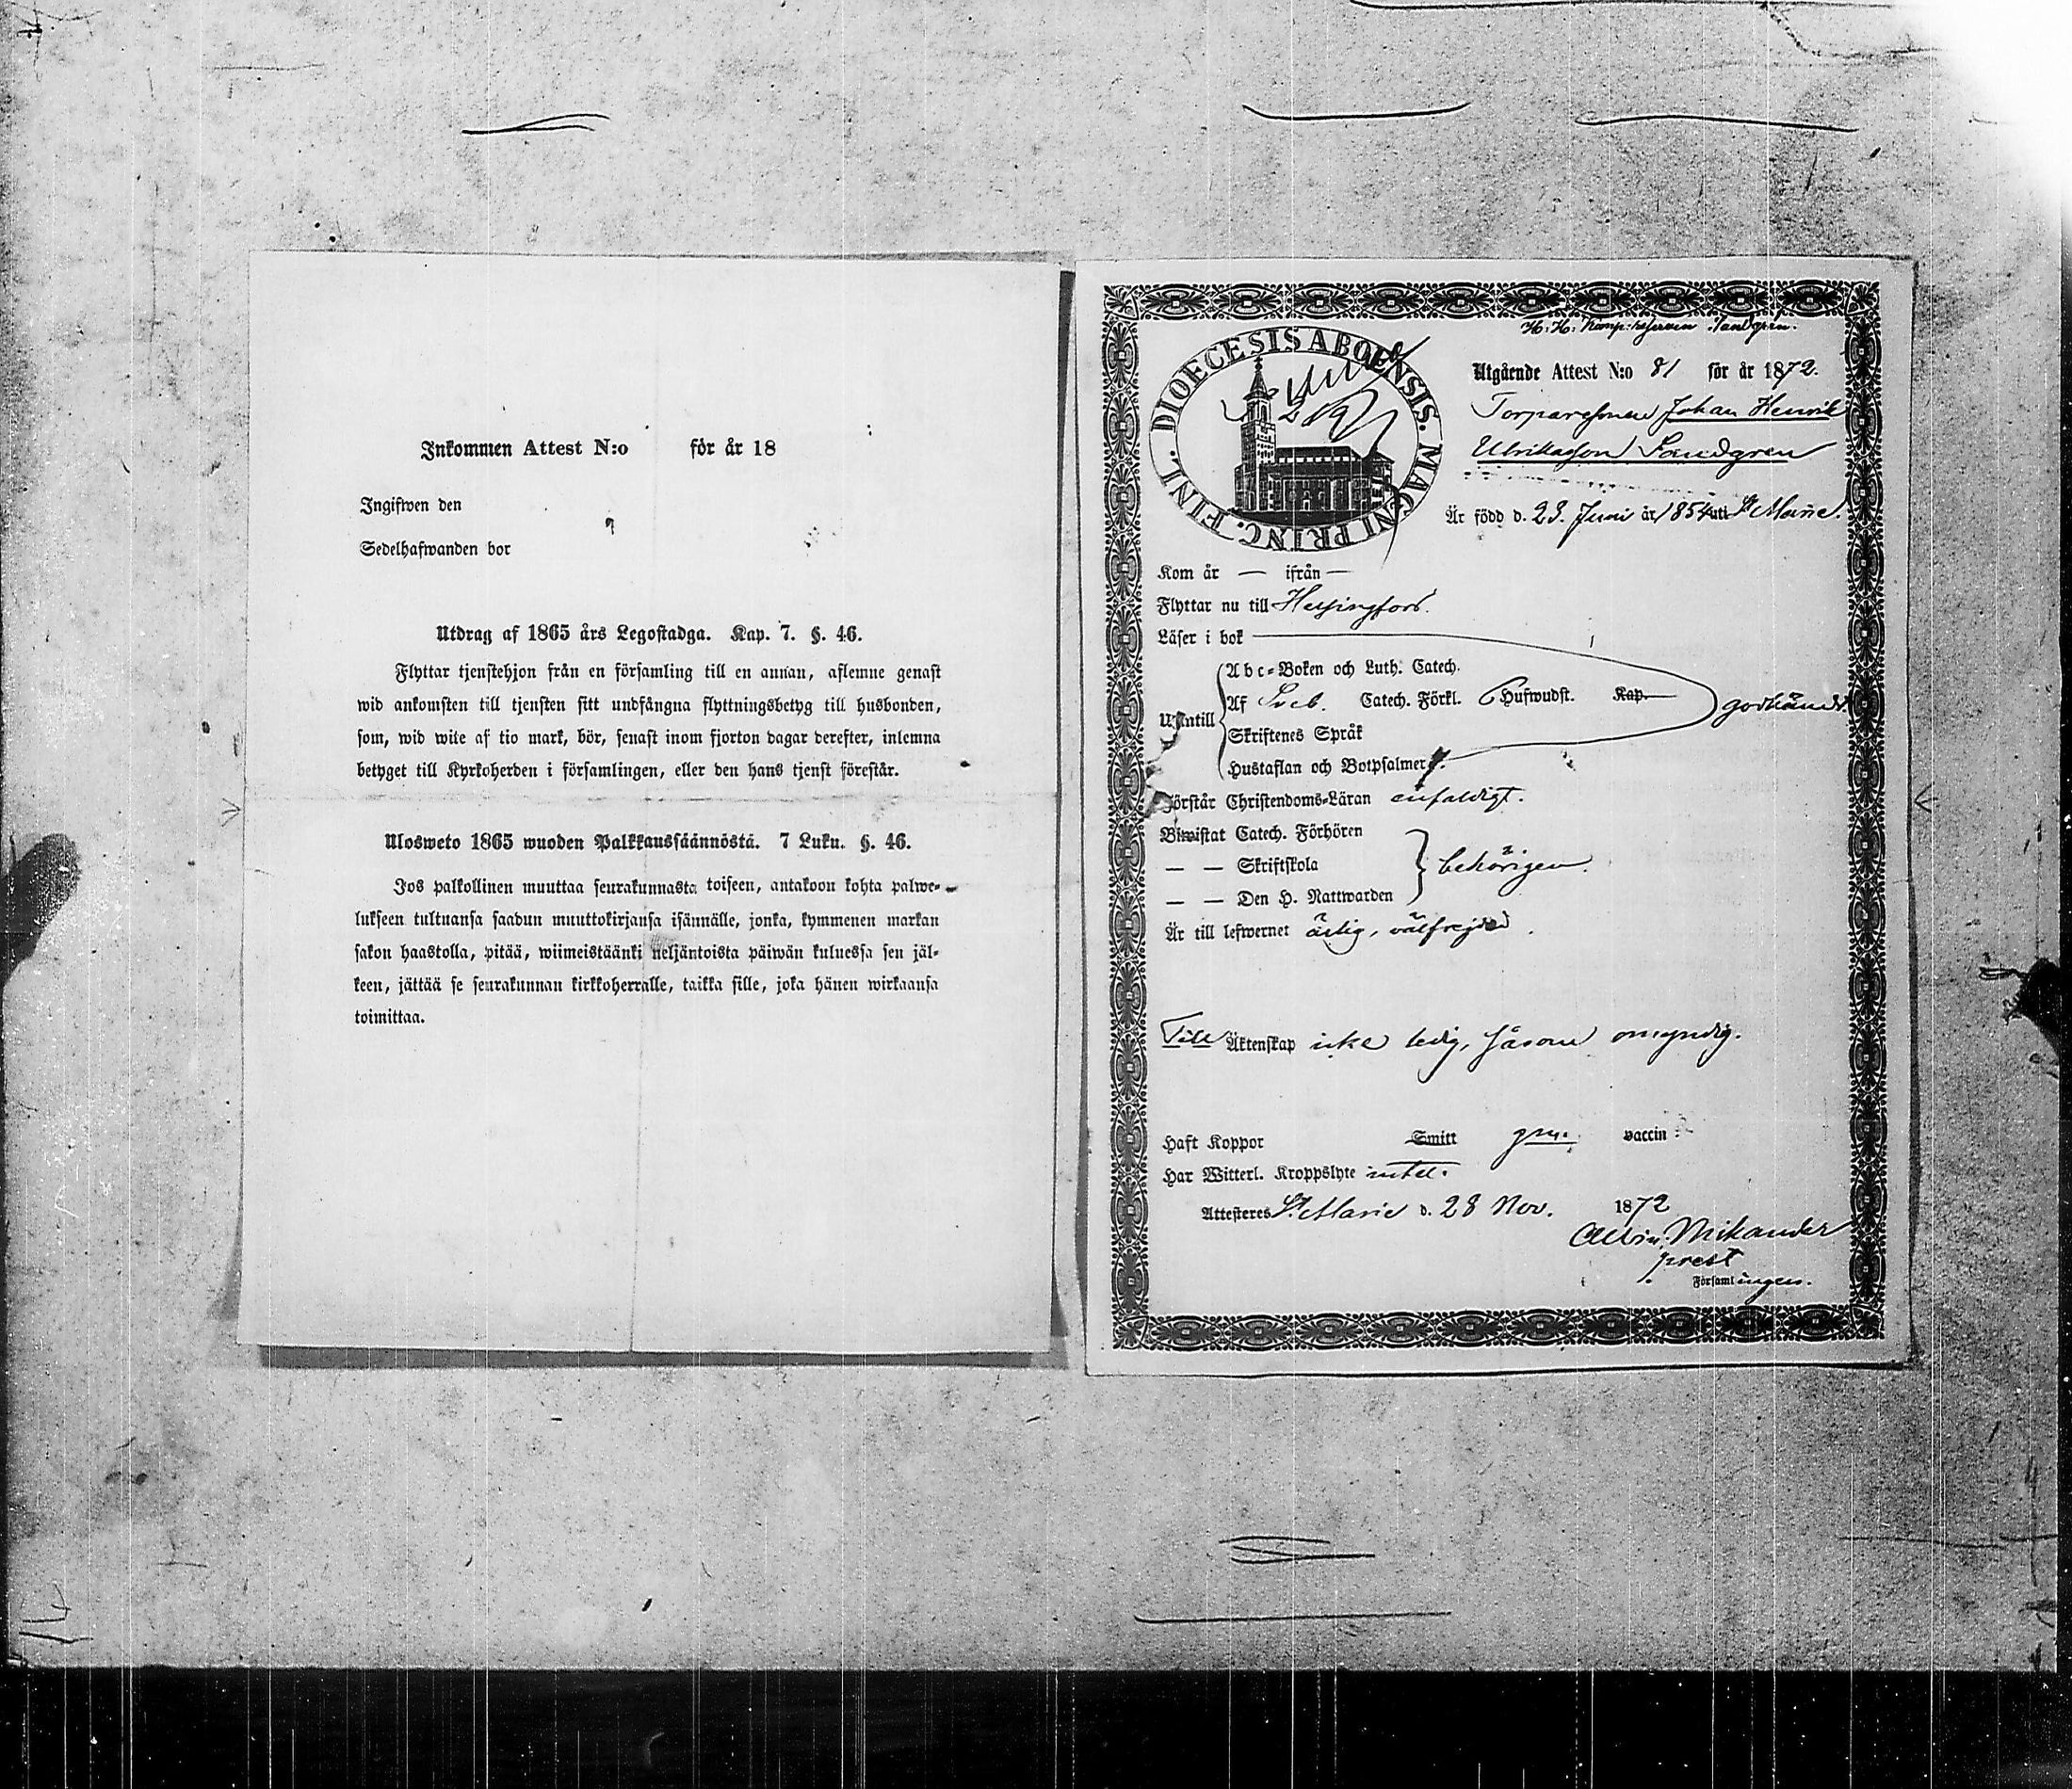 Inkommen Attest N:o för år 18
Ingifwen den
Sedelhafwanden bor
Utdrag af 1865 års Legostadga. Kap. 7. §. 46.
Flyttar tjenstehjon från en församling till en annan, aflemne genast
wid ankomsten till tjensten sitt undfångna flyttningsbetyg till husbonden,
som, wid wite af tio mark, bör, senast inom fjorton dagar derefter, inlemna
betyget till Kyrkoherden i församlingen, eller den hans tjenst förestår.
Ulosweto 1865 wuoden Palkkaussäännöstä. 7 Luku. §. 46.
Jos palkollinen muuttaa seurakunnasta toiseen, antakoon kohta palwe-
lukseen tultuansa saadun muuttokirjansa isännälle, jonka, kymmenen markan
sakon haastolla, pitää, wiimeistäänki neljäntoista päiwän kuluessa sen jäl-
keen, jättää se seurakunnan kirkkoherralle, taikka sille, joka hänen wirkaansa
toimittaa.
H. H. Sandgrén.
DIOECESIS ABOENSIS. MAGNI PRINC. FINL.
Utgående Attest N:o 81 för år 1872.
Torparesonen Johan Henrik
Ulriksson Sandgren
Är född d. 23. Juni år 1854 uti St Marie.
Kom år — ifrån —
Flyttar nu till Helsingfors.
Läser i bok
Abc-Boken och Luth. Catech.
Utantill Af Sveb. Catech. Förkl. 6 Hufwudst. Kap. godkändt.
Skriftenes Språk
Hustaflan och Botpsalmer
Förstår Christendoms-Läran enfaldigt.
Biwistat Catech. Förhören
— — Skriftskola behörigen.
— — Den H. Nattwarden
Är till lefwernet ärlig, välfrejdad.
Till Äktenskap icke ledig, såsom omyndig.
Haft Koppor Smitt gm. vaccin:
Har Witterl. Kroppslyte intet.
Attesteres St Marie d. 28 Nov. 1872
Albin Mikander
prest
Församlingen.